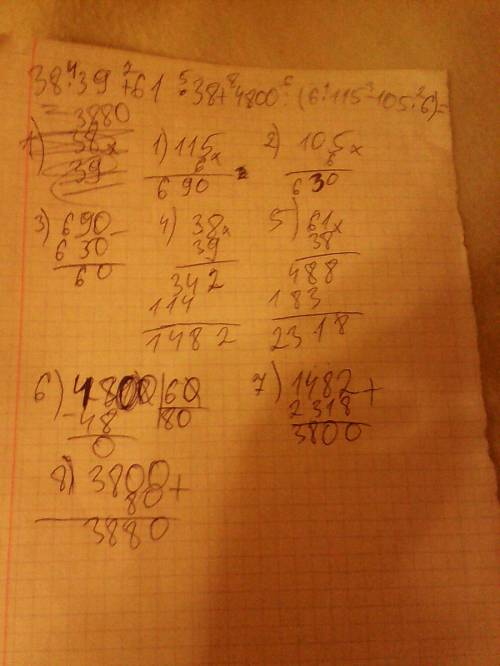 38·39+61·38+4800:(6·115-105·6)=
=3880
1) 38x
39
1) 115x
6
690
2) 105x
6
630
3) 690-
630
60
4) 38x
39
342
114
1482
5) 61x
38
488
183
2318
6) 4800|60
-48 80
0
7) 1482+
2318
3800
8) 3800+
80
3880